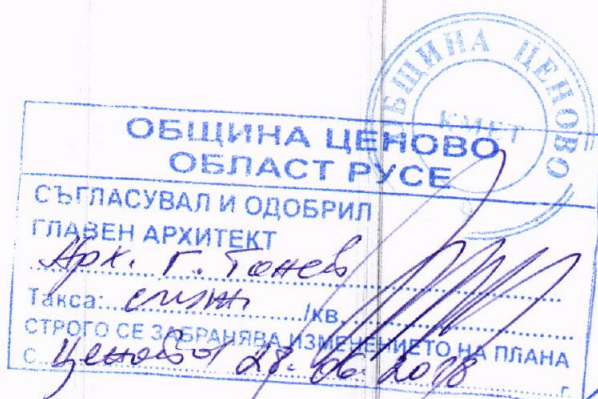 ОБЩИНА ЦЕНОВО
КМЕТ
ОБЩИНА ЦЕНОВО
ОБЛАСТ РУСЕ
СЪГЛАСУВАЛ И ОДОБРИЛ
ГЛАВЕН АРХИТЕКТ
Арх. Г. Тонев
Такса: /кв.
СТРОГО СЕ ЗАБРАНЯВА ИЗМЕНЕНИЕТО НА ПЛАНА
с. Ценово 28.06.2018 г.